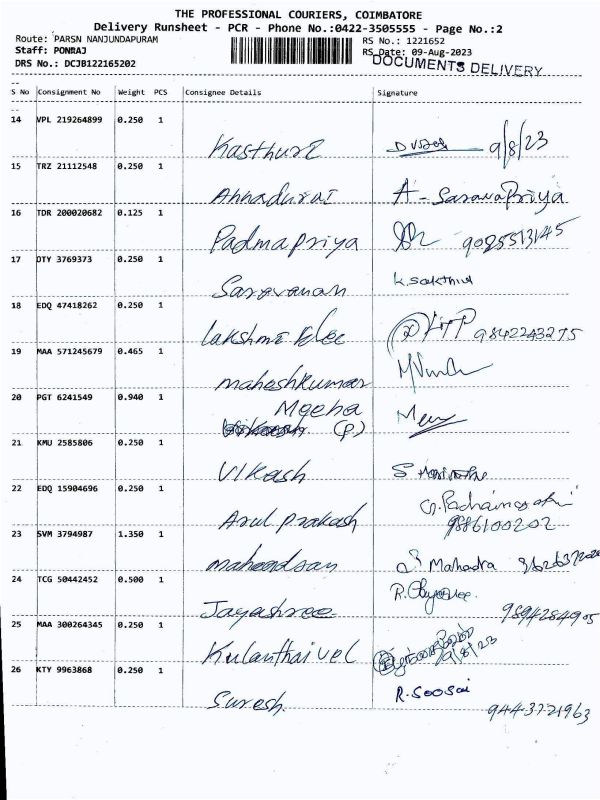 THE PROFESSIONAL COURIERS, COIMBATORE
Delivery Runsheet - PCR - Phone No.:0422-3505555 - Page No.:2
Route: PARSN NANJUNDAPURAM RS No.: 1221652
Staff: PONRAJ RS Date: 09-Aug-2023
DRS No.: DCJB122165202 DOCUMENTS DELIVERY
S No Consignment No Weight PCS Consignee Details Signature
14 VPL 219264899 0.250 1
Kasthuri 9/8/23
15 TRZ 21112548 0.250 1
Annadurai A - SaravaPriya
16 TDR 200020682 0.125 1
Padmapriya 9025513145
17 OTY 3769373 0.250 1
Saravanan K. Sakthivel
18 EDQ 47418262 0.250 1
Lakshmi Elec 9842243275
19 MAA 571245679 0.465 1
maheshkumar
20 PGT 6241549 0.940 1
Mgeha
(P)
21 KMU 2585806 0.250 1
Vikash
22 EDQ 15904696 0.250 1
Arul prakash 9886100202
23 SVM 3794987 1.350 1
Mahadra
24 TCG 50442452 0.500 1
Jayashree 9894284905
25 MAA 300264345 0.250 1
Kulanthaivel 9/8/23
26 KTY 9963868 0.250 1
Suresh. R. Soosai
944-3721963